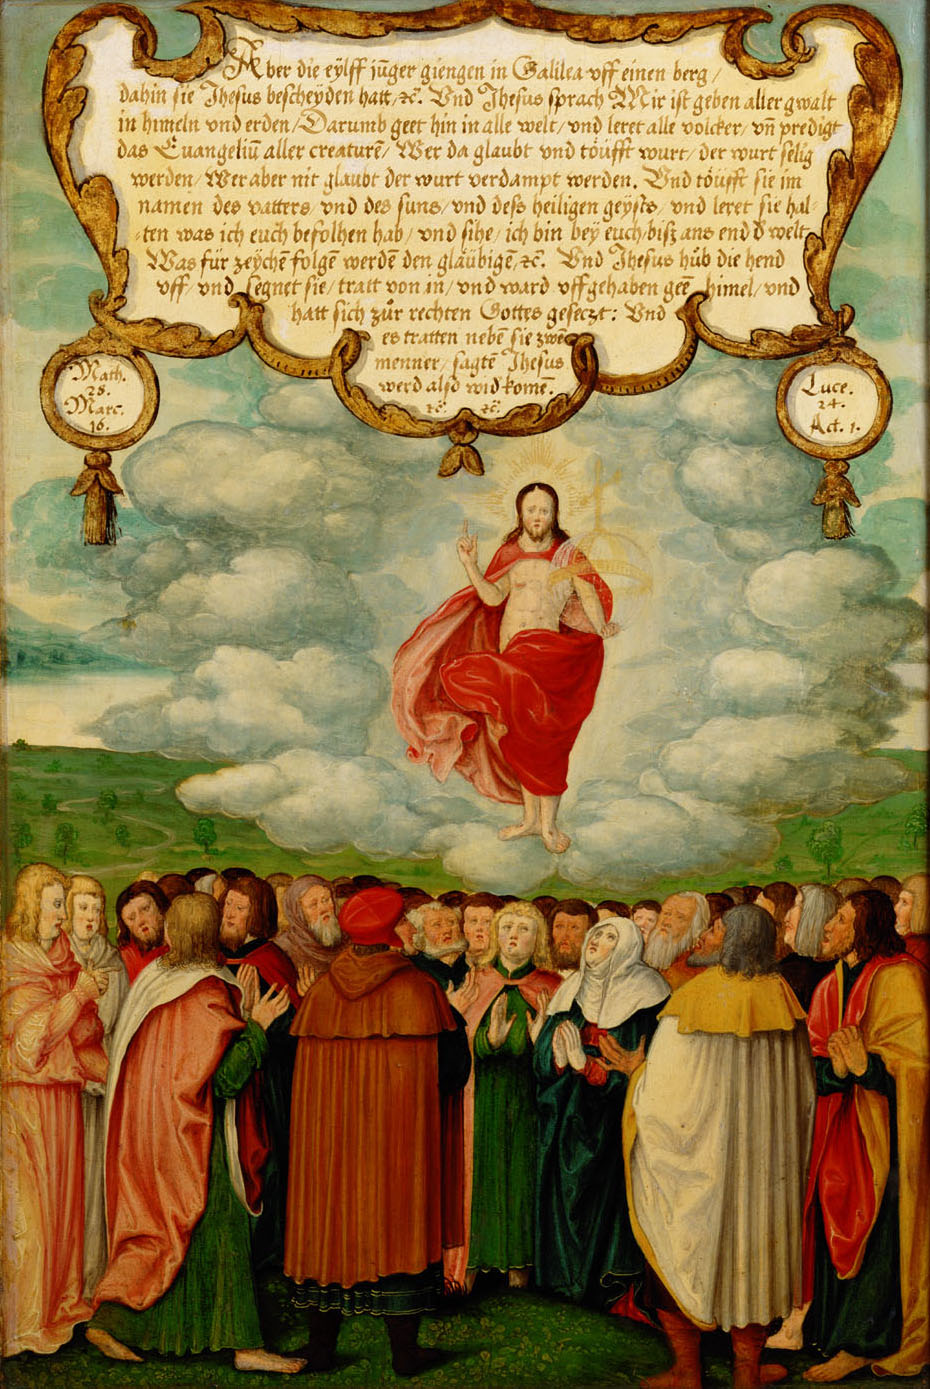 Aber die eÿlff jũger giengen in Galilea vff einen berg/
dahin sie Jhesus bescheÿden hatt/ꝛc̃. Vnd Jhesus sprach Mir ist geben aller gwalt
in himeln vnd erden/Darumb geet hin in alle welt/vnd leret alle volcker/vñ predigt
das Euangeliũ aller creaturẽ/Wer da glaubt vnd töufft wurt/der wurt selig
werden/Wer aber nit glaubt der wurt verdampt werden. Vnd töufft sie im
namen des vatters/vnd des suns/vnd dess heiligen geÿsts/vnd leret sie hal-
ten was ich euch befolhen hab/vnd sihe/ich bin beÿ euch/bisz ans end d̕ welt
Was für zeÿchẽ folgẽ werdẽ den gläubigẽ/ꝛc̃. Vnd Jhesus hůb die hend
vff/vnd segnet sie/tratt von in/vnd ward vffgehaben geẽ himel/vnd
hatt sich zůr rechten Gottes geseczt: Vnd
es tratten nebẽ sie zwẽ
menner/sagtẽ Jhesus
werd also wid̕ komẽ.
ꝛc̃. ꝛc̃.
Math.
28.
Marc.
16.
Luce.
24.
Act. 1.